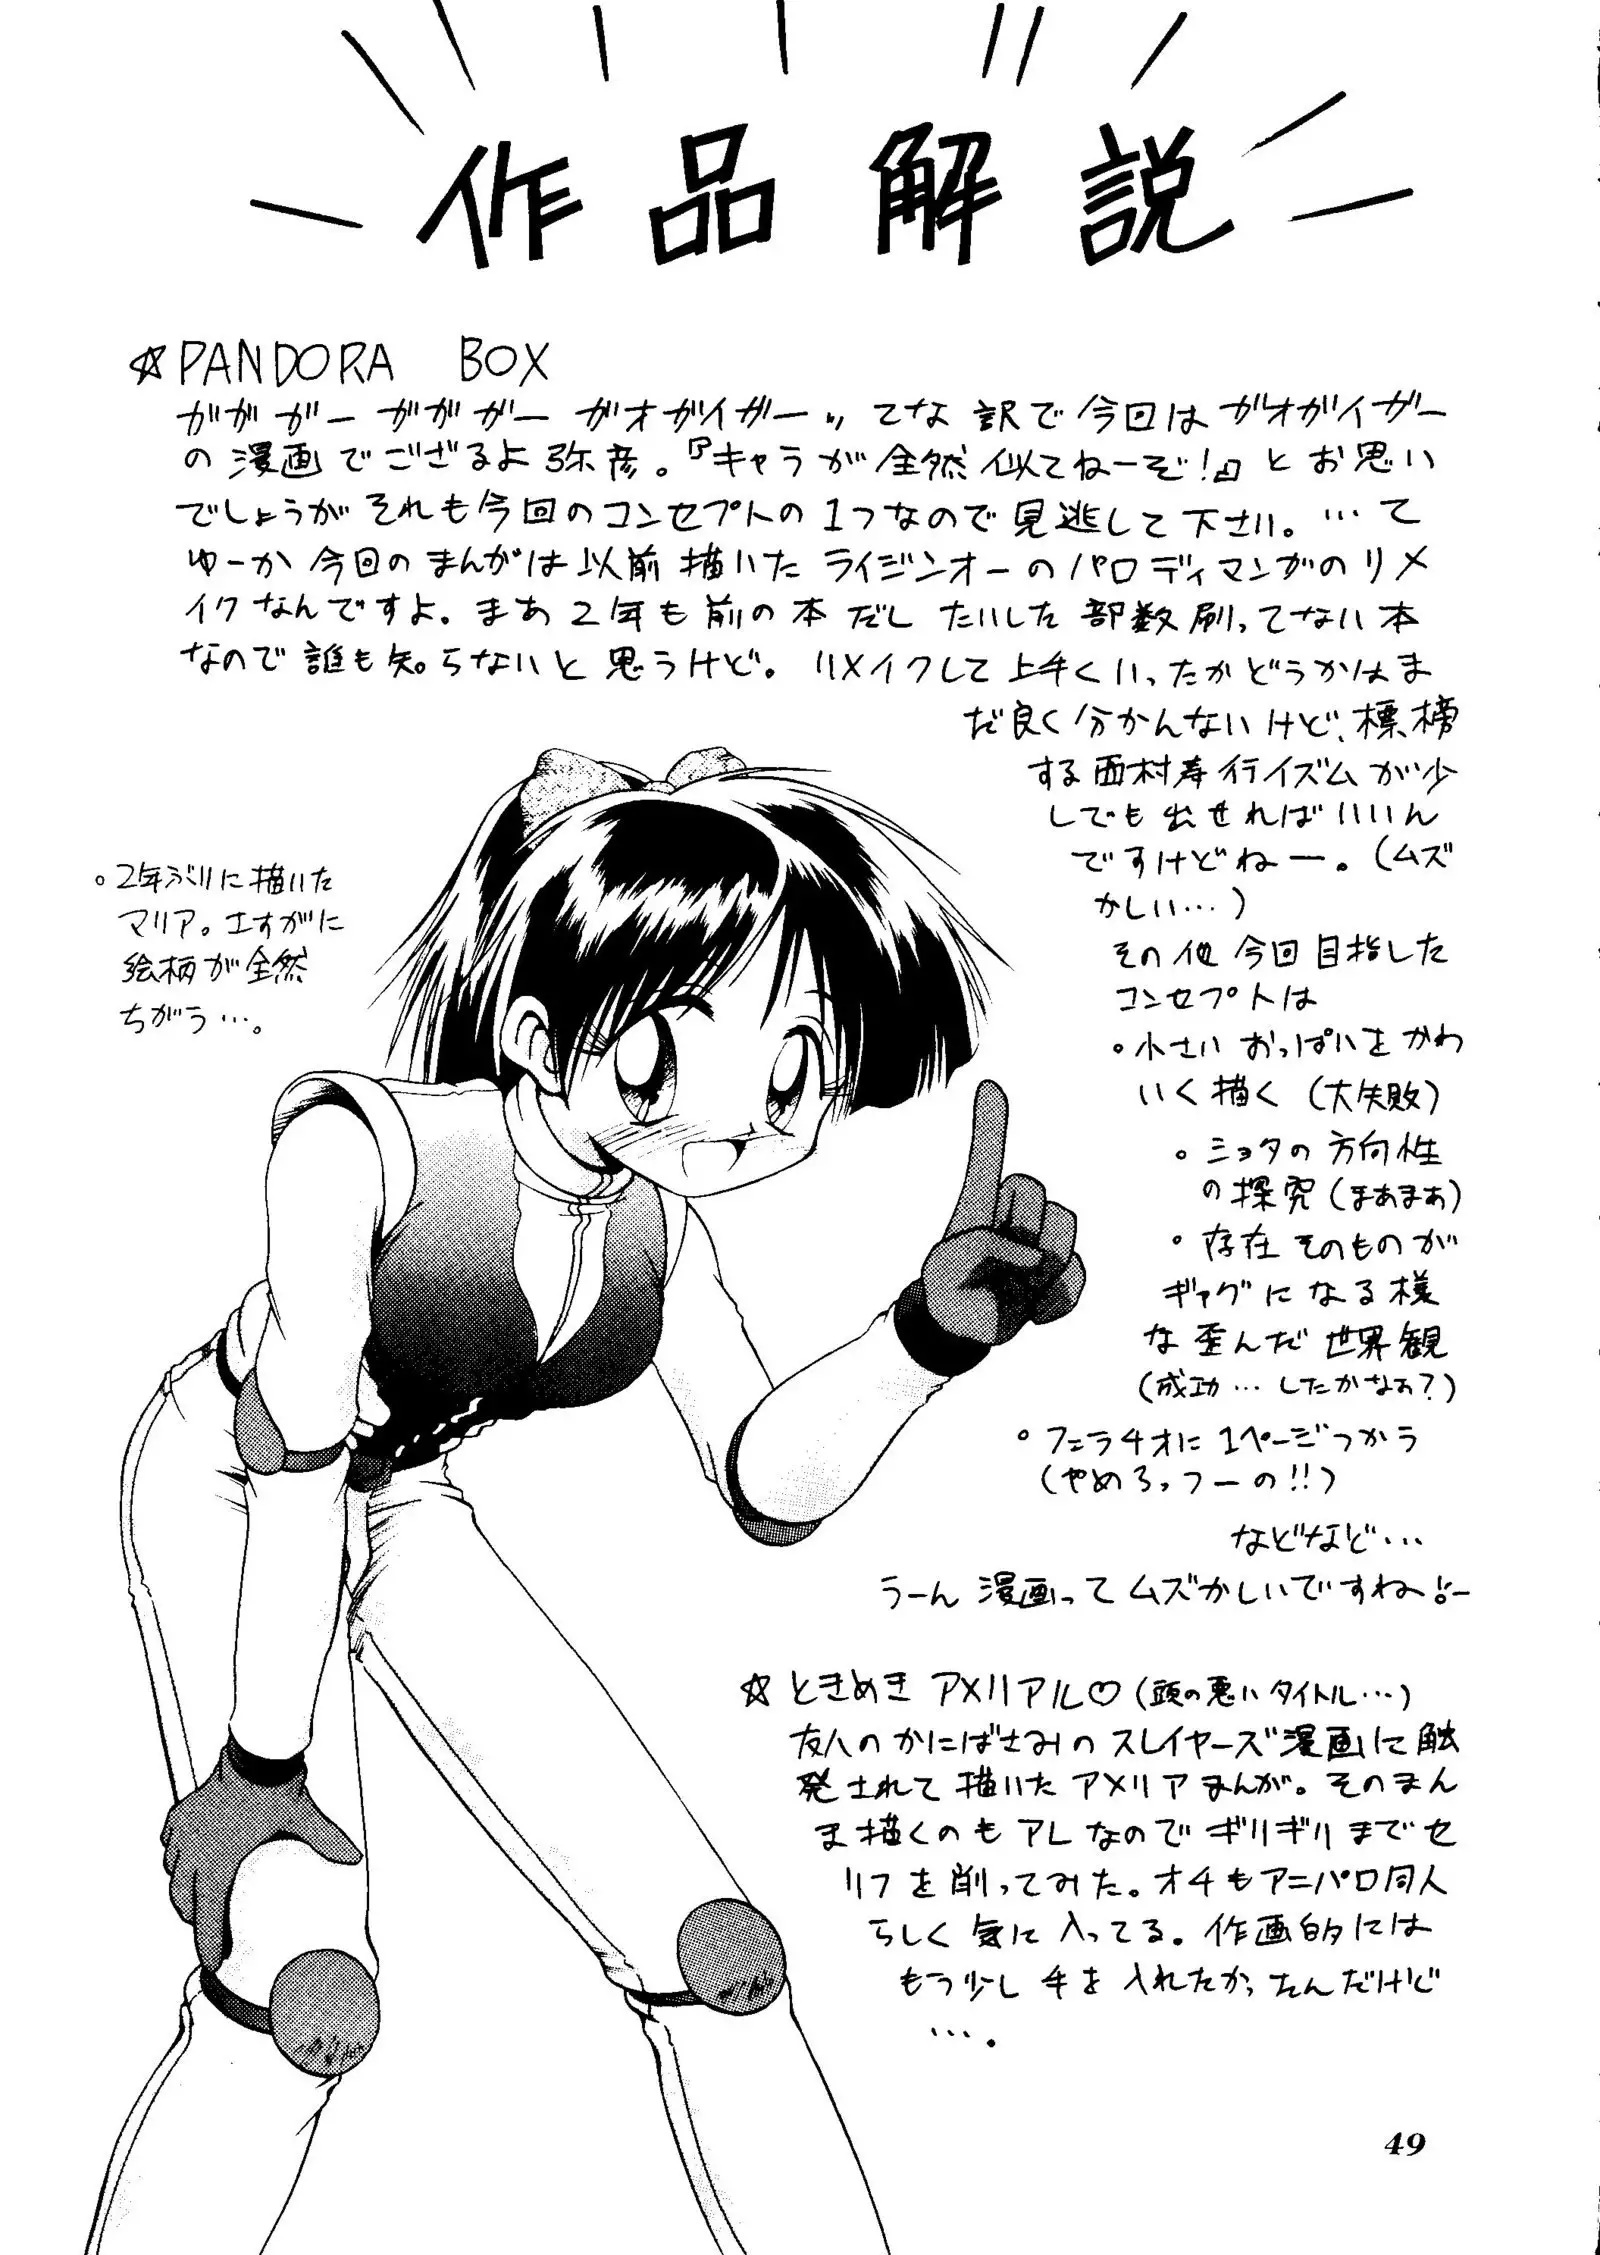 作品解説
☆PANDORA BOX
ガガガー ガガガー ガオガイガーッてな訳で今回はガオガイガー
の漫画でござるよ弥彦。『キャラが全然似てねーぞ!』とお思い
でしょうがそれも今回のコンセプトの1つなので見逃して下さい。…て
ゆーか今回のまんがは以前描いたライジンオーのパロディマンガのリメ
イクなんですよ。まあ2年も前の本だしたいした部数刷ってない本
なので誰も知らないと思うけど。リメイクして上手くいったかどうかはま
だ良く分かんないけど、標榜
する西村寿行イズムが少
しでも出せればいいん
ですけどねー。(ムズ
かしい…)
その他今回目指した
コンセプトは
。小さいおっぱいをかわ
いく描く(大失敗)
。ショタの方向性
の探究(まあまあ)
。存在そのものが
ギャグになる様
な歪んだ世界観
(成功…したかなあ?)
。フェラチオに1ページつかう
(やめろっつーの!!)
などなど…
うーん漫画ってムズかしいですねー
。2年ぶりに描いた
マリア。さすがに
絵柄が全然
ちがう…。
☆ときめきアメリアル♡(頭の悪いタイトル…)
友人のかにばさみのスレイヤーズ漫画に触
発されて描いたアメリアまんが。そのまん
ま描くのもアレなのでギリギリまでセ
リフを削ってみた。オチもアニパロ同人
らしく気に入ってる。作画的には
もう少し手を入れたかったんだけど
…。
49